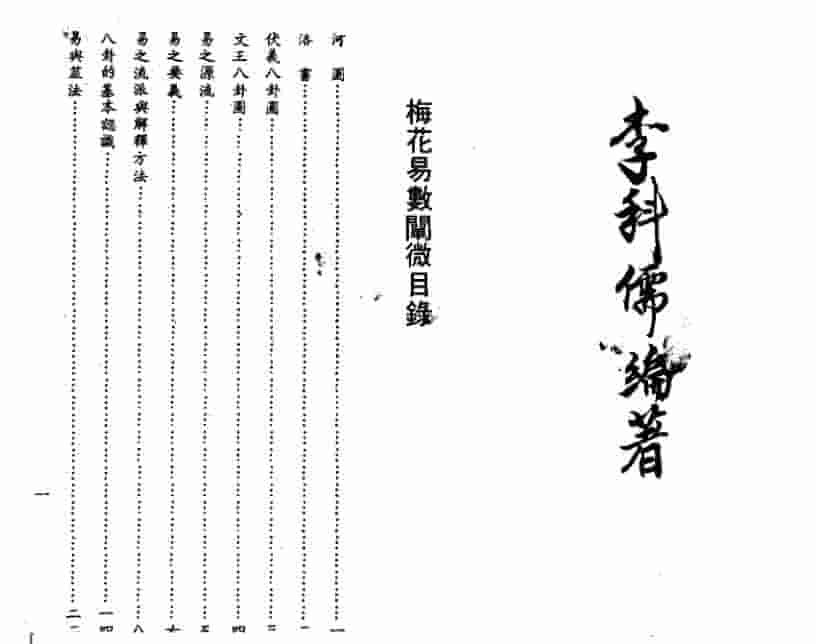 李科儒編著
梅花易數闡微目錄
河圖……一
洛書……二
伏羲八卦圖……三
文王八卦圖……四
易之源流……五
易之要義……六
易之流派與解釋方法……八
八卦的基本認識……一四
易與筮法……二二
一